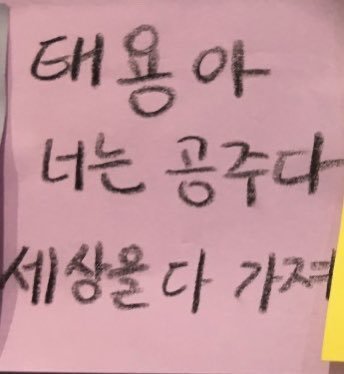 태용아
너는 공주다
세상을 다 가져